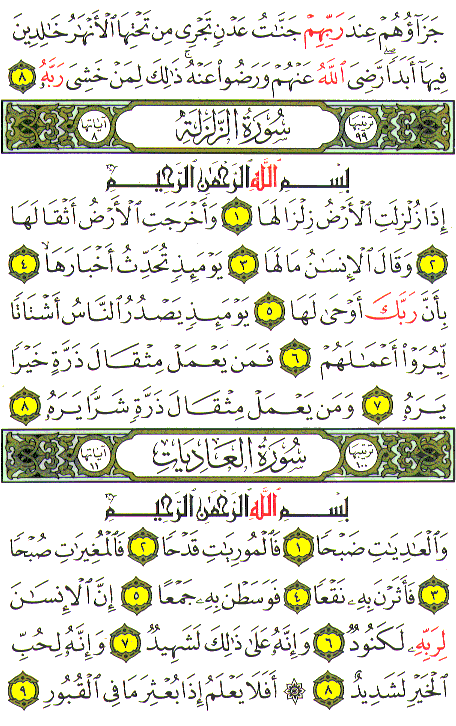 جَزَآؤُهُمْ عِندَ رَبِّهِمْ جَنَّٰتُ عَدْنٍ تَجْرِى مِن تَحْتِهَا ٱلْأَنْهَٰرُ خَٰلِدِينَ
فِيهَآ أَبَدًا ۖ رَّضِىَ ٱللَّهُ عَنْهُمْ وَرَضُوا۟ عَنْهُ ۚ ذَٰلِكَ لِمَنْ خَشِىَ رَبَّهُۥ ٨
ترتيبها ٩٩ سُورَةُ الزَّلْزَلَة آياتها ٨
بِسْمِ ٱللَّهِ ٱلرَّحْمَٰنِ ٱلرَّحِيمِ
إِذَا زُلْزِلَتِ ٱلْأَرْضُ زِلْزَالَهَا ١ وَأَخْرَجَتِ ٱلْأَرْضُ أَثْقَالَهَا
٢ وَقَالَ ٱلْإِنسَٰنُ مَا لَهَا ٣ يَوْمَئِذٍ تُحَدِّثُ أَخْبَارَهَا ٤
بِأَنَّ رَبَّكَ أَوْحَىٰ لَهَا ٥ يَوْمَئِذٍ يَصْدُرُ ٱلنَّاسُ أَشْتَاتًا
لِّيُرَوْا۟ أَعْمَٰلَهُمْ ٦ فَمَن يَعْمَلْ مِثْقَالَ ذَرَّةٍ خَيْرًا
يَرَهُۥ ٧ وَمَن يَعْمَلْ مِثْقَالَ ذَرَّةٍ شَرًّا يَرَهُۥ ٨
ترتيبها ١٠٠ سُورَةُ العَادِيَات آياتها ١١
بِسْمِ ٱللَّهِ ٱلرَّحْمَٰنِ ٱلرَّحِيمِ
وَٱلْعَٰدِيَٰتِ ضَبْحًا ١ فَٱلْمُورِيَٰتِ قَدْحًا ٢ فَٱلْمُغِيرَٰتِ صُبْحًا
٣ فَأَثَرْنَ بِهِۦ نَقْعًا ٤ فَوَسَطْنَ بِهِۦ جَمْعًا ٥ إِنَّ ٱلْإِنسَٰنَ
لِرَبِّهِۦ لَكَنُودٌ ٦ وَإِنَّهُۥ عَلَىٰ ذَٰلِكَ لَشَهِيدٌ ٧ وَإِنَّهُۥ لِحُبِّ
ٱلْخَيْرِ لَشَدِيدٌ ٨ ۞ أَفَلَا يَعْلَمُ إِذَا بُعْثِرَ مَا فِى ٱلْقُبُورِ ٩